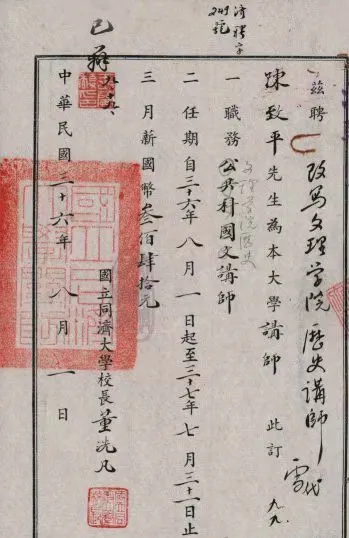 茲聘
改為文理學院歷史講師
陳致平先生為本大學講師 此訂
一 職務 公共科國文講師
文理學院歷史
二 任期自三十六年八月一日起至三十七年七月三十一日止
三 月新國幣叁佰肆拾元
國立同濟大學校長董洗凡
中華民國三十六年 八月 一日
已辭
濟聘字